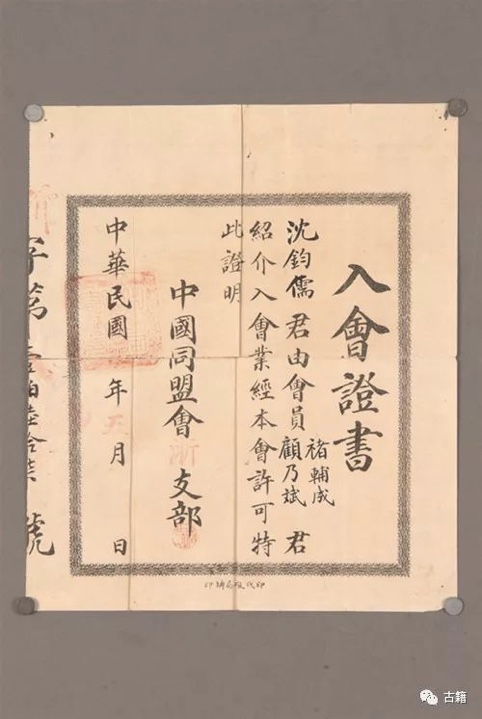 入會證書
沈鈞儒君由會員褚輔成顧乃斌君
紹介入會業經本會許可特
此證明
中國同盟會浙支部
中華民國年五月日
字第壹伯陸拾柒號
古籍